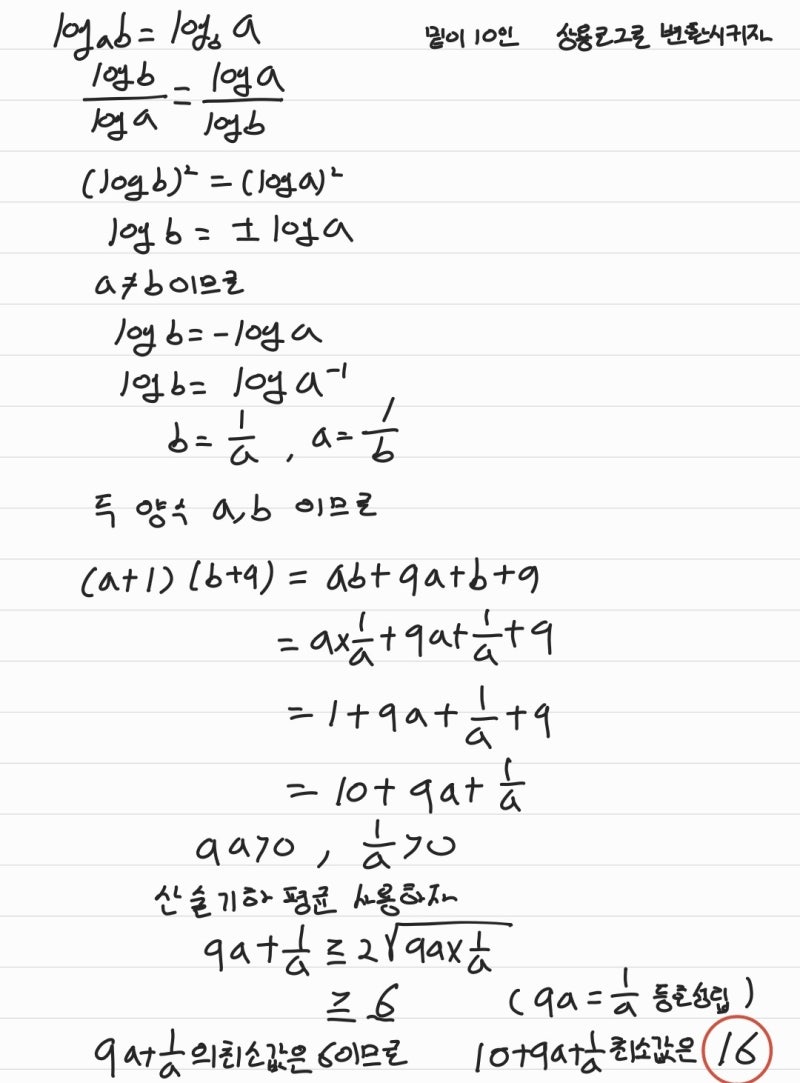 log_a b = log_b a 밑이 10인 상용로그로 변환시키자
log b / log a = log a / log b
(log b)² = (log a)²
log b = ± log a
a ≠ b 이므로
log b = - log a
log b = log a⁻¹
b = 1/a , a = 1/b
두 양수 a, b 이므로
(a+1) (b+9) = ab + 9a + b + 9
= a × 1/a + 9a + 1/a + 9
= 1 + 9a + 1/a + 9
= 10 + 9a + 1/a
9a > 0 , 1/a > 0
산술기하 평균 사용하자
9a + 1/a ≥ 2√(9a × 1/a)
≥ 6 ( 9a = 1/a 등호성립 )
9a + 1/a 의 최소값은 6이므로 10 + 9a + 1/a 최소값은 16